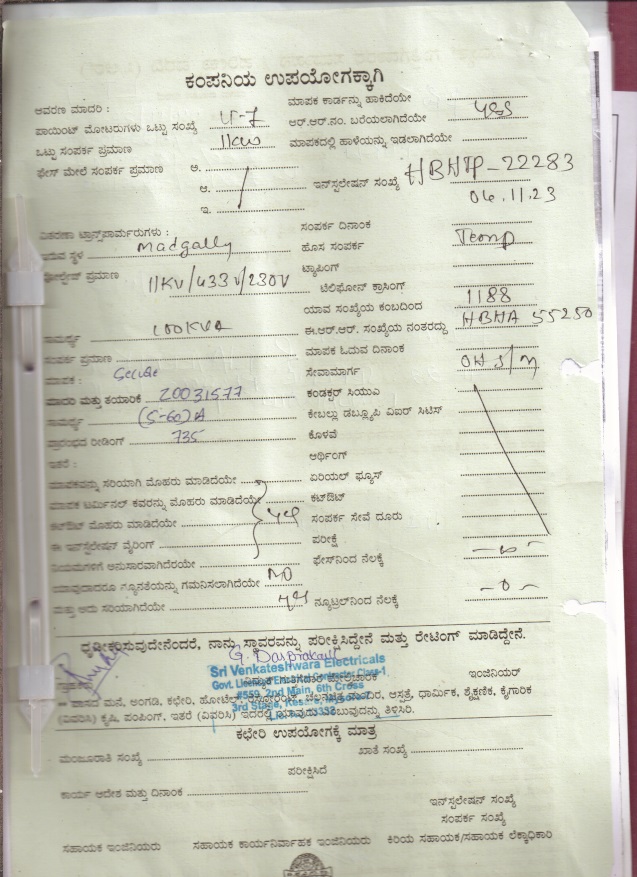 ಕಂಪನಿಯ ಉಪಯೋಗಕ್ಕಾಗಿ
ಆವರಣ ಮಾದರಿ :
ಮಾಪಕ ಕಾರ್ಡನ್ನು ಹಾಕಿದೆಯೇ
ಪಾಯಿಂಟ್ ಮೋಟರುಗಳು ಒಟ್ಟು ಸಂಖ್ಯೆ
ಆರ್.ಆರ್.ನಂ. ಬರೆಯಲಾಗಿದೆಯೇ yes
ಒಟ್ಟು ಸಂಪರ್ಕ ಪ್ರಮಾಣ 11KW
ಮಾಪಕದಲ್ಲಿ ಹಾಳೆಯನ್ನು ಇಡಲಾಗಿದೆಯೇ
ಫೇಸ್ ಮೇಲೆ ಸಂಪರ್ಕ ಪ್ರಮಾಣ ಅ.
ಆ. ಇನ್‌ಸ್ಟಲೇಷನ್ ಸಂಖ್ಯೆ HBHTP-22283
ಇ. 04.11.23
ವಿತರಣಾ ಟ್ರಾನ್ಸ್‌ಫಾರ್ಮರುಗಳು :
ಸಂಪರ್ಕ ದಿನಾಂಕ
ಇರುವ ಸ್ಥಳ Madgally
ಹೊಸ ಸಂಪರ್ಕ Temp
ವೋಲ್ಟೇಜ್ ಪ್ರಮಾಣ 11KV/433V/230V
ಟ್ಯಾಪಿಂಗ್
ಟೆಲಿಫೋನ್ ಕ್ರಾಸಿಂಗ್
ಯಾವ ಸಂಖ್ಯೆಯ ಕಂಬದಿಂದ 1188
ಸಾಮರ್ಥ್ಯ 100KVA
ಈ.ಆರ್.ಆರ್. ಸಂಖ್ಯೆಯ ನಂತರದ್ದು HBHA 55250
ಸಂಪರ್ಕ ಪ್ರಮಾಣ
ಮಾಪಕ ಓದುವ ದಿನಾಂಕ
ಮಾಪಕ : Secure
ಸೇವಾಮಾರ್ಗ OH S/M
ಮಾದರಿ ಮತ್ತು ತಯಾರಿಕೆ 20031577
ಕಂಡಕ್ಟರ್ ಸಿಯುಎ
ಸಾಮರ್ಥ್ಯ (5-60)A
ಕೇಬಲ್ಲು ಡಬ್ಲ್ಯೂಪಿ ವಿಐರ್ ಸಿಟಿಸ್
ಪ್ರಾರಂಭದ ರೀಡಿಂಗ್ 735
ಕೊಳವೆ
ಇತರೆ :
ಆರ್ಥಿಂಗ್
ಮಾಪಕವನ್ನು ಸರಿಯಾಗಿ ಮೊಹರು ಮಾಡಿದೆಯೇ
ಏರಿಯಲ್ ಫ್ಯೂಸ್
ಮಾಪಕ ಟರ್ಮಿನಲ್ ಕವರನ್ನು ಮೊಹರು ಮಾಡಿದೆಯೇ
ಕಟ್‌ಔಟ್
ಕಟ್‌ಔಟ್ ಮೊಹರು ಮಾಡಿದೆಯೇ yes
ಸಂಪರ್ಕ ಸೇವೆ ದೂರು
ಈ ಇನ್‌ಸ್ಟಲೇಷನ್ ವೈರಿಂಗ್
ಪರೀಕ್ಷೆ
ನಿಯಮಗಳಿಗೆ ಅನುಸಾರವಾಗಿದೆಯೇ
ಫೇಸ್‌ನಿಂದ ನೆಲಕ್ಕೆ
ಯಾವುದಾದರೂ ನ್ಯೂನತೆಯನ್ನು ಗಮನಿಸಲಾಗಿದೆಯೇ NO
ಮತ್ತು ಅದು ಸರಿಯಾಗಿದೆಯೇ yes
ನ್ಯೂಟ್ರಲ್‌ನಿಂದ ನೆಲಕ್ಕೆ -0-
ದೃಢೀಕರಿಸುವುದೇನೆಂದರೆ, ನಾನು ಸ್ಥಾವರವನ್ನು ಪರೀಕ್ಷಿಸಿದ್ದೇನೆ ಮತ್ತು ರೇಟಿಂಗ್ ಮಾಡಿದ್ದೇನೆ.
Sri Venkateshwara Electricals
Govt. Licensed Electrical Class-1,
#559, 2nd Main, 6th Cross
3rd Stage,
ಇಂಜಿನಿಯರ್
ವಾಸದ ಮನೆ, ಅಂಗಡಿ, ಕಛೇರಿ, ಹೋಟೆಲ್ ಆಸ್ಪತ್ರೆ, ಧಾರ್ಮಿಕ, ಶೈಕ್ಷಣಿಕ, ಕೈಗಾರಿಕೆ
(ವಿವರಿಸಿ) ಕೃಷಿ, ಪಂಪಿಂಗ್, ಇತರೆ (ವಿವರಿಸಿ) ಇದರಲ್ಲಿ ತಿಳಿಸಿರಿ.
ಕಛೇರಿ ಉಪಯೋಗಕ್ಕೆ ಮಾತ್ರ
ಮಂಜೂರಾತಿ ಸಂಖ್ಯೆ ಖಾತೆ ಸಂಖ್ಯೆ
ಪರೀಕ್ಷಿಸಿದೆ
ಕಾರ್ಯ ಆದೇಶ ಮತ್ತು ದಿನಾಂಕ
ಇನ್‌ಸ್ಟಲೇಷನ್ ಸಂಖ್ಯೆ
ಸಂಪರ್ಕ ಸಂಖ್ಯೆ
ಸಹಾಯಕ ಇಂಜಿನಿಯರು ಸಹಾಯಕ ಕಾರ್ಯನಿರ್ವಾಹಕ ಇಂಜಿನಿಯರು ಕಿರಿಯ ಸಹಾಯಕ/ಸಹಾಯಕ ಲೆಕ್ಕಾಧಿಕಾರಿ